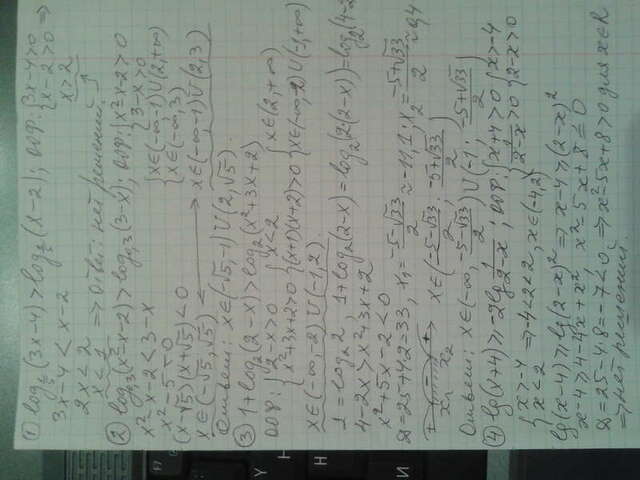 ① log½(3x-4) > log½(x-2); ООФ: {3x-4>0 {x-2>0 =>
3x-4 < x-2 x>2
2x < 2
x < 1 => Ответ: нет решений.
② log₁,₃(x²-x-2) > log₁,₃(3-x); ООФ: {x²-x-2>0 {3-x>0
x²-x-2 < 3-x {x∈(-∞,-1)∪(2,+∞)
x²-5=0 {x∈(-∞,3)
(x-√5)(x+√5)<0
x∈(-√5,√5) x∈(-∞,-1)∪(2,3)
Ответ: x∈(-√5,-1)∪(2,√5).
③ 1+log₂(2-x) > log₂(x²+3x+2)
ООФ: {2-x>0 {x<2 x∈(2,+∞)
{x²+3x+2>0 {(x+1)(x+2)>0 {x∈(-∞,2)∪(-1,+∞)
x∈(-∞,2)∪(-1,2).
1=log₂2, 1+log₂(2-x)=log₂(2·(2-x))=log₂(4-2
4-2x>x²+3x+2
x²+5x-2<0
D=25+4·2=33, x₁=(-5-√33)/2≈-11,1; x₂=(-5+√33)/2≈0,4
x₁ x₂ x∈((-5-√33)/2; (-5+√33)/2)
Ответ: x∈(-∞, (-5-√33)/2)∪(-1; (-5+√33)/2)
④ lg(x+4) ≥ -2lg 1/(2-x); ООФ: {x+4>0 {1/(2-x)>0 {x>-4 {2-x>0
{x>-4 {x<2 => -4<2<2, x∈(-4,2)
lg(x-4) ≥ lg(2-x)² => x-4 ≥ (2-x)²
x-4 ≥ 4-4x+x² x²-5x+8 ≤ 0
D=25-4·8=-7<0 => x²-5x+8>0 для x∈R
=> нет решений.
Y
H
И